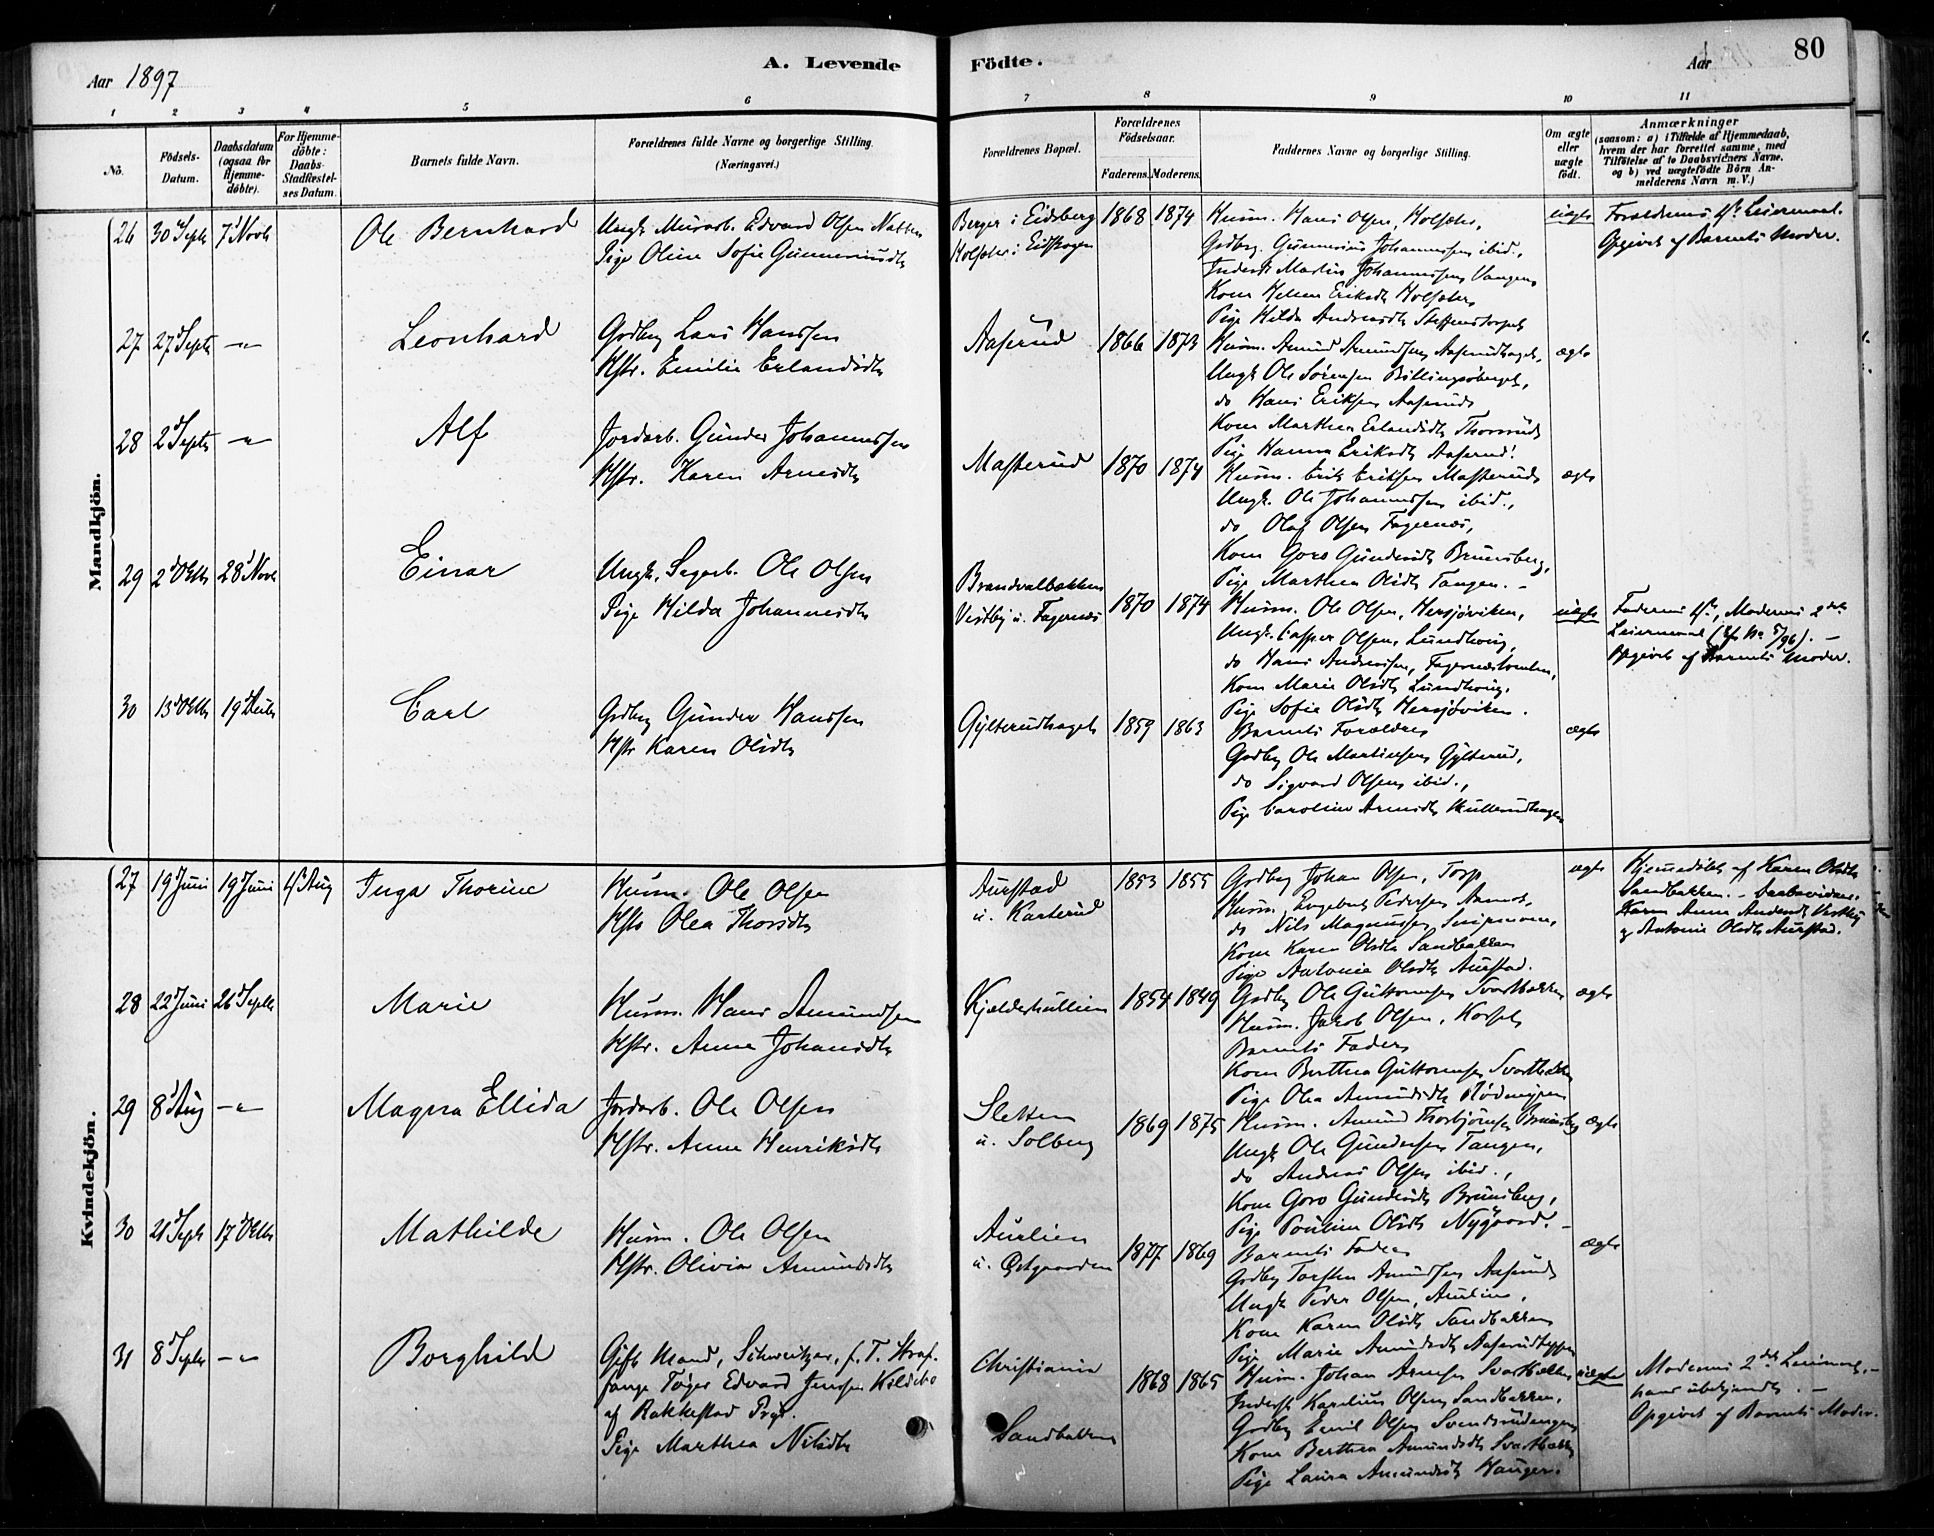 Aar 1897
A. Levende
Födte.
Aar
80
1 2 3 4 5 6 7 8 9 10 11
No.
Födsels-Datum.
Daabsdatum (ogsaa for Hjemme-döbte).
For Hjemme-döbte: Daabs-Stadfæstel-ses Datum.
Barnets fulde Navn.
Forældrenes fulde Navne og borgerlige Stilling. (Næringsvei.)
Forældrenes Bopæl.
Forældrenes Födselsaar.
Faderens. Moderens.
Faddernes Navne og borgerlige Stilling.
Om ægte eller uægte födt.
Anmærkninger
(saasom: a) i Tilfælde af Hjemmedaab, hvem der har forrettet samme, med Tilföielse af to Daabsvidners Navne, og b) ved uægtefödte Börn An-melderens Navn m. V.)
Mandkjön.
26 30 Septr 7 Novb Ole Bernhard
Ungk. Murarb. Edvard Olsen
Pige Oline Sofie Gunneriusdtr
Berger i Eidsberg
Holsæter i Eidskogen
1868 1874
Husm. Hans Olsen, Holsæter,
Gaardbr. Gunnerius Johannessen ibid.,
Inderst Martin Johannessen Vangen,
Kone Helene Eriksdtr Holsæter,
Pige Hilda Andreasdtr
uægte
Forældrenes 1ste Leiermaal.
Opgivet af Barnets Moder.
27 27 Septr -"- Leonhard
Gaardbr. Lars Hanssen
Hstr. Emilie Erlandsdtr
Aaserud
1866 1873
Husm. Amund Amundsen Aaserudhaget,
Ungk. Ole Sørensen Billingsberget,
do Hans Eriksen Aaserud
Kone Marthea Erlandsdtr Thorsrud
Pige Hanna Eriksdtr Aaserud.
ægte
28 2 Septr -"- Alf
Jordarb. Gunder Johannessen
Hstr. Karen Arnesdtr
Masterud
1870 1874
Husm. Erik Eriksen Masterud
Ungk. Ole Johannessen ibid.,
do Olaf Olsen Fagernæs,
Kone Goro Gundersdtr Brunsberg,
Pige Marthea Olsdtr Tangen. -
ægte
29 2 Oktb 28 Novb Einar
Ungk. Sagarb. Ole Olsen
Pige Hilda Johannesdtr
Brandvalbakken
Vestby u. Fagernæs
1870 1874
Husm. Ole Olsen, Hersjøviken,
Ungk. Casper Olsen, Lundhoug,
do Hans Andersen, Fagernæstomten,
Kone Marie Olsdtr Lundhoug,
Pige Sofie Olsdtr Hersjøviken.
uægte
Faderens 1ste, Moderens 2det
Leiermaal (cfr No 5/96). -
Opgivet af Barnets Moder.
30 13 Oktb 19 Decbr Carl
Gaardbr. Gunder Hanssen
Hstr Karen Olsdtr
Gylterudhaget
1859 1863
Barnets Forældre
Gaardbr. Ole Martinsen Gylterud,
do Sigvard Olsen ibid.,
Pige Caroline Arnesdtr
ægte
Kvindekjön.
27 19 Juni 19 Juni 1ste Aug Inga Thorine
Husm. Ole Olsen
Hstr Olea Thorsdtr
Aurstad
u. Karterud
1853 1855
Gaardbr. Johan Olsen, Torp
Husm. Engebret Pedersen Aamot,
do Nils Magnussen Snipamoen,
Kone Karen Olsdtr Sandbakken
Pige Antonie Olsdtr Aurstad.
ægte
Hjemmedöbt af Karen Olsdtr
Sandbakken. - Daabsvidner:
Karen Anne Andersdtr Vestby
og Antonie Olsdtr Aurstad.
28 22 Juni 26 Septb Marie
Husm. Hans Amundsen
Hstr. Anne Johansdtr
Kjelderhullien
1854 1849
Gaardbr. Ole Guttormsen Svartbakken
Husm. Jakob Olsen,
Barnets Fader,
Kone Berthea Guttormsen Svartbakken
Pige Olea Amundsdtr Rødmyren
ægte
29 8 Aug -"- Magna Ellida
Jordarb. Ole Olsen
Hstr. Anne Henriksdtr
Sletten
u. Solberg
1869 1875
Husm. Amund Thorbjörnsen Brunsberg
Ungk Ole Gundersen Tangen,
do Andreas Olsen ibid.,
Kone Goro Gundersdtr Brunsberg,
Pige Pouline Olsdtr Nygaard. -
ægte
30 21 Septr 17 Oktb Mathilde
Husm. Ole Olsen
Hstr. Olivia Amundsdtr
Aurlien
u. Østgaarden
1877 1869
Barnets Fader
Gaardbr. Torsten Amundsen Aaserud
Ungk Peder Olsen, Aurlien,
Kone Karen Olsdtr Sandbakken
Pige Marie Amundsdtr
ægte
31 8 Septr -"- Borghild
Gift Mand, Schweitzer, f. T. Straf-
fange Tøger Edvard Jensen Kildebo
af Rakkestad Prgj.
Pige Marthea Nilsdtr
Christiania
Sandbakken
1868 1865
Husm. Johan Arnesen Svartbakken
Inderst Karelius Olsen Sandbakken,
Gaardbr. Emil Olsen Svendsrudengen
Kone Berthea Amundsdtr Svartbakken
Pige Laura Amundsdtr Hanger.
uægte
Moderens 2det Leiermaal, -
hans ubekjendt. -
Opgivet af Barnets Moder.